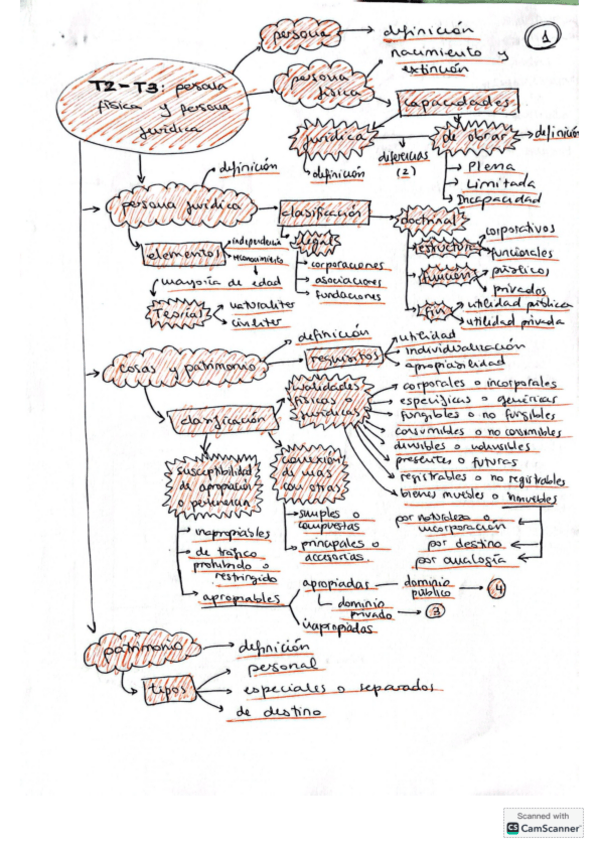 persona
definición
1
nacimiento y
extinción
T2-T3: persona
física y persona
jurídica
persona
física
capacidades
jurídica
de obrar
definición
definición
diferencias
(2)
Plena
Limitada
Incapacidad
definición
persona jurídica
clasificación
doctrinal
corporativos
estructura
funcionales
elementos
independencia
reconocimiento
legal
corporaciones
asociaciones
fundaciones
función
públicos
privados
mayoría de edad
Teorías
naturaliter
civiliter
fin
utilidad pública
utilidad privada
definición
cosas y patrimonio
requisitos
utilidad
individualización
apropiabilidad
cualidades
físicas o
jurídicas
corporales o incorporales
específicas o genéricas
fungibles o no fungibles
consumibles o no consumibles
divisibles o indivisibles
presentes o futuras
registrables o no registrables
bienes muebles o inmuebles
clasificación
susceptibilidad
de apropiación
o pertenencia
conexión
de unas
con otras
simples o
compuestas
principales o
accesorias
por naturaleza o
incorporación
por destino
por analogía
inapropiables
de tráfico
prohibido o
restringido
apropiables
apropiadas
dominio
público
4
dominio
privado
3
inapropiadas
patrimonio
definición
tipos
personal
especiales o separados
de destino
Scanned with
CS CamScanner